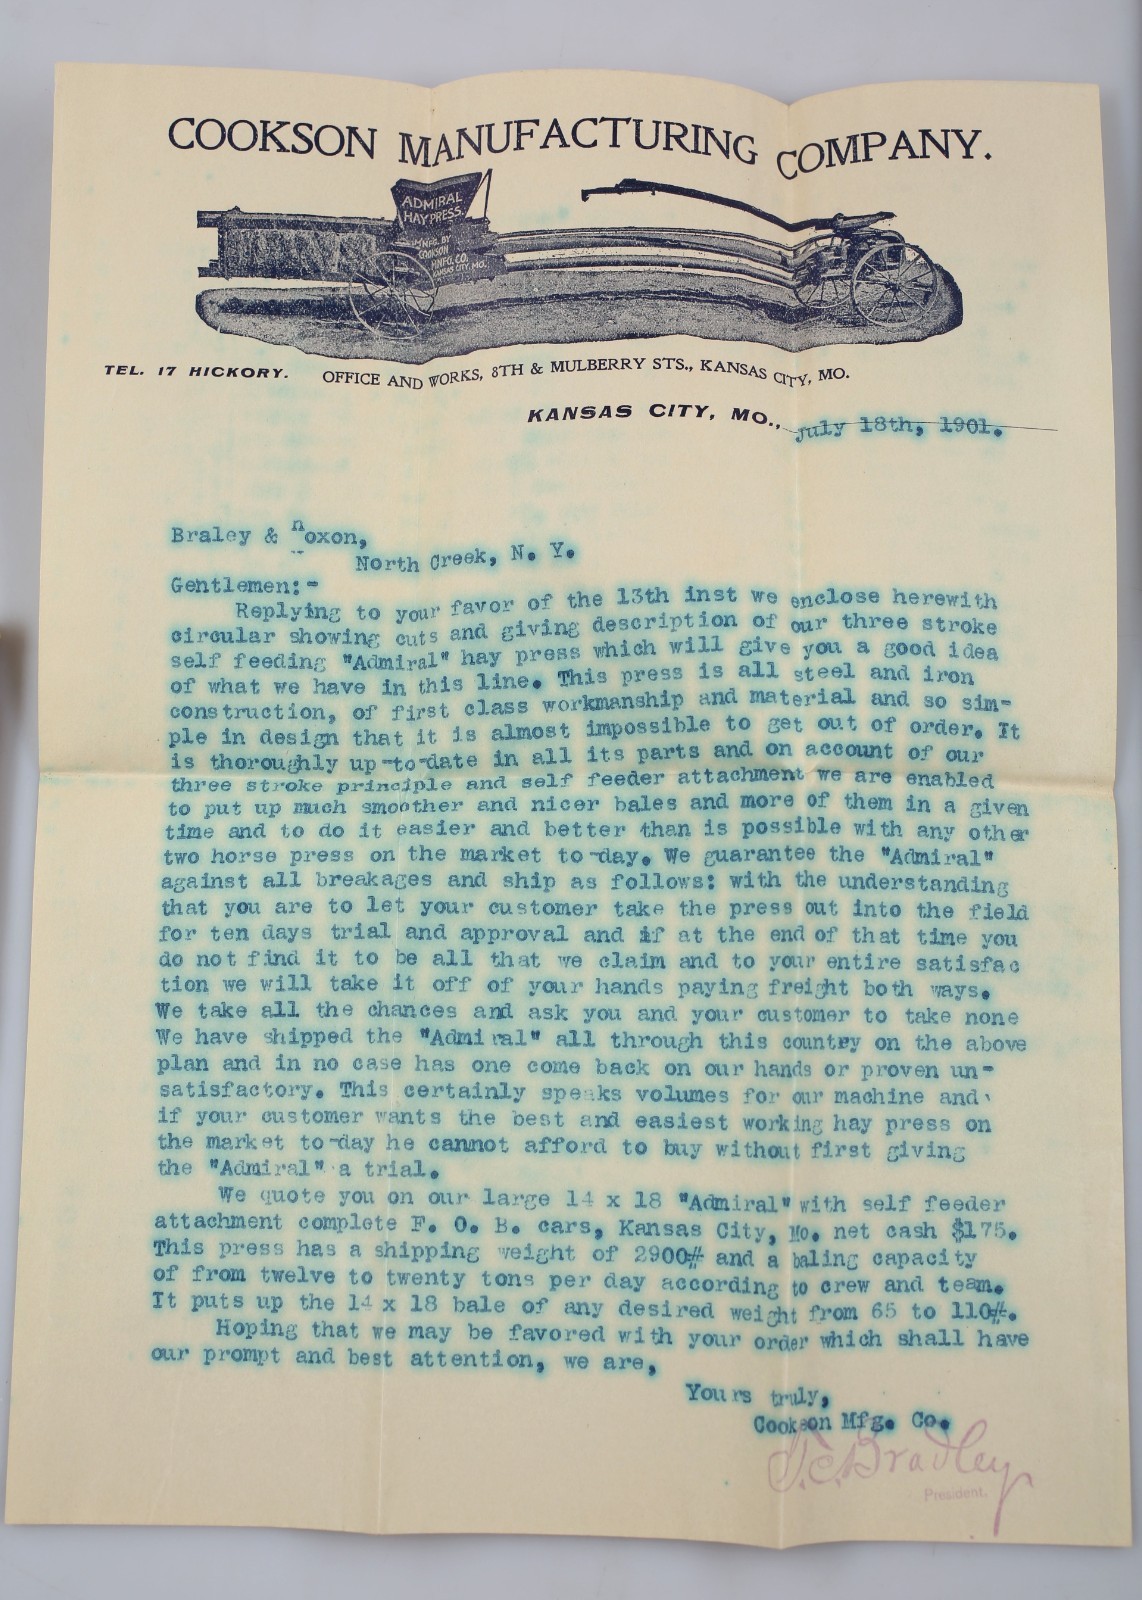 COOKSON MANUFACTURING COMPANY.
ADMIRAL
HAY PRESS.
MNFG. BY
COOKSON
MNFG. CO.
KANSAS CITY, MO.
TEL. 17 HICKORY. OFFICE AND WORKS, 8TH & MULBERRY STS., KANSAS CITY, MO.
KANSAS CITY, MO., July 18th, 1901.
Braley & noxon,
North Creek, N. Y.
Gentlemen:-
Replying to your favor of the 13th inst we enclose herewith
circular showing cuts and giving description of our three stroke
self feeding "Admiral" hay press which will give you a good idea
of what we have in this line. This press is all steel and iron
construction, of first class workmanship and material and so sim-
ple in design that it is almost impossible to get out of order. It
is thoroughly up-to-date in all its parts and on account of our
three stroke principle and self feeder attachment we are enabled
to put up much smoother and nicer bales and more of them in a given
time and to do it easier and better than is possible with any other
two horse press on the market to-day. We guarantee the "Admiral"
against all breakages and ship as follows: with the understanding
that you are to let your customer take the press out into the field
for ten days trial and approval and if at the end of that time you
do not find it to be all that we claim and to your entire satisfac
tion we will take it off of your hands paying freight both ways.
We take all the chances and ask you and your customer to take none
We have shipped the "Admiral" all through this country on the above
plan and in no case has one come back on our hands or proven un-
satisfactory. This certainly speaks volumes for our machine and
if your customer wants the best and easiest working hay press on
the market to-day he cannot afford to buy without first giving
the "Admiral" a trial.
We quote you on our large 14 x 18 "Admiral" with self feeder
attachment complete F. O. B. cars, Kansas City, Mo. net cash $175.
This press has a shipping weight of 2900# and a baling capacity
of from twelve to twenty tons per day according to crew and team.
It puts up the 14 x 18 bale of any desired weight from 65 to 110#.
Hoping that we may be favored with your order which shall have
our prompt and best attention, we are,
Yours truly,
Cookson Mfg. Co.
Bradley
President.